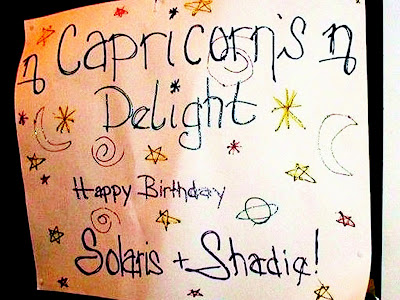 ♑ Capricorn's ♑
Delight
Happy Birthday
Solaris + Shadia!